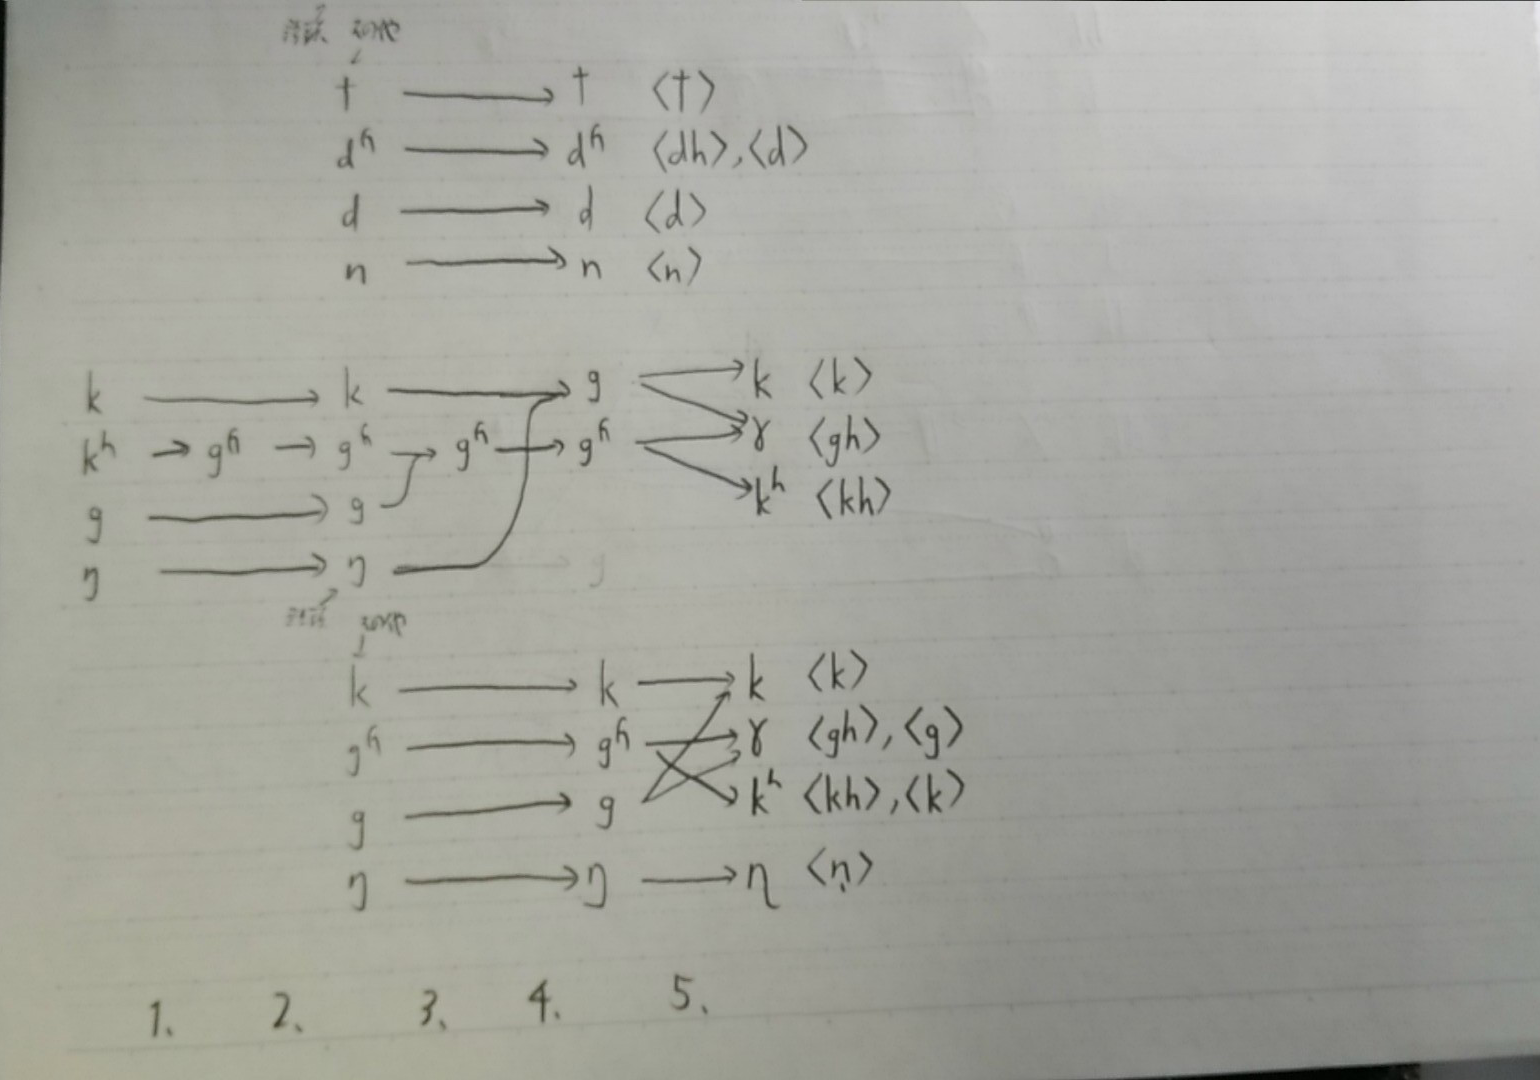 t → t ⟨t⟩
dʱ → dʱ ⟨dh⟩,⟨d⟩
d → d ⟨d⟩
n → n ⟨n⟩
k → k → g → k ⟨k⟩
kʰ → gʱ → gʱ → gʱ → gʱ → ɣ ⟨gh⟩
kʰ ⟨kh⟩
g → g
ŋ → ŋ g
k → k → k ⟨k⟩
gʱ → gʱ → ɣ ⟨gh⟩,⟨g⟩
g → g kʰ ⟨kh⟩,⟨k⟩
ŋ → ŋ → ŋ ⟨ṇ⟩
1. 2. 3. 4. 5.